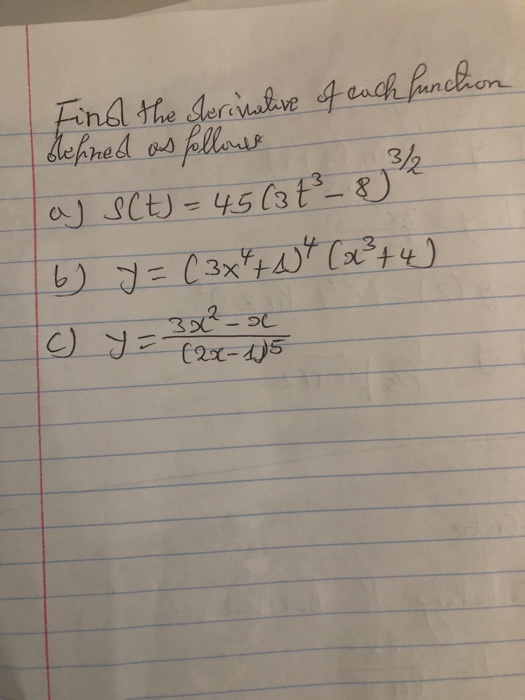 Find the derivative of each function
defined as follows
a) S(t) = 45(3t³ - 8)^3/2
b) y = (3x⁴+1)⁴ (x³+4)
c) y = 3x² - x / (2x-1)⁵